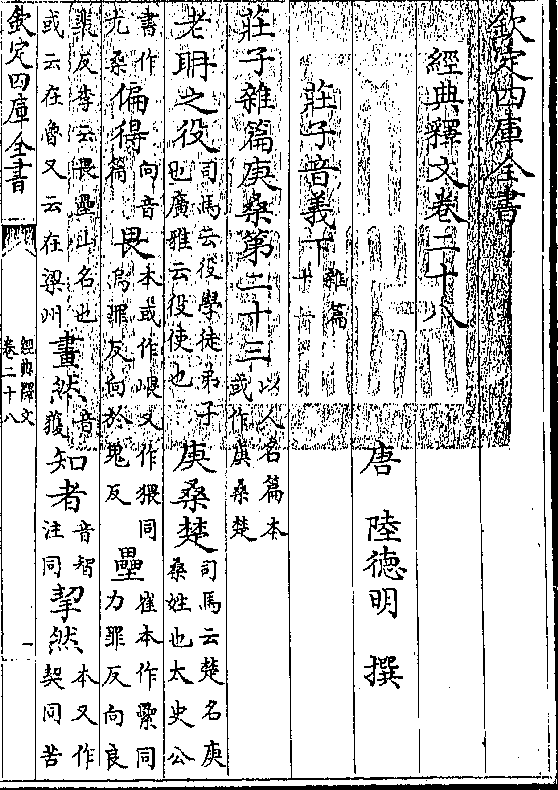 欽定四庫全書
經典釋文卷二十八
唐 陸德明 撰
莊子音義下 雜篇
莊子雜篇庚桑第二十三 以人名篇本或作庚桑楚
老聃之役 司馬云役學徒弟子也廣雅云役使也 庚桑楚 司馬云楚名庚桑姓也太史公
書作亢桑 偏得 向音篇 畏 本或作峎又作猥同烏罪反向於鬼反 壘 崔本作纍同力罪反向良
裴反李云畏壘山名也或云在魯又云在梁州 畫然 音獲 知者 音智注同 挈然 本又作契同苦
欽定四庫全書
經典釋文
卷二十八
一